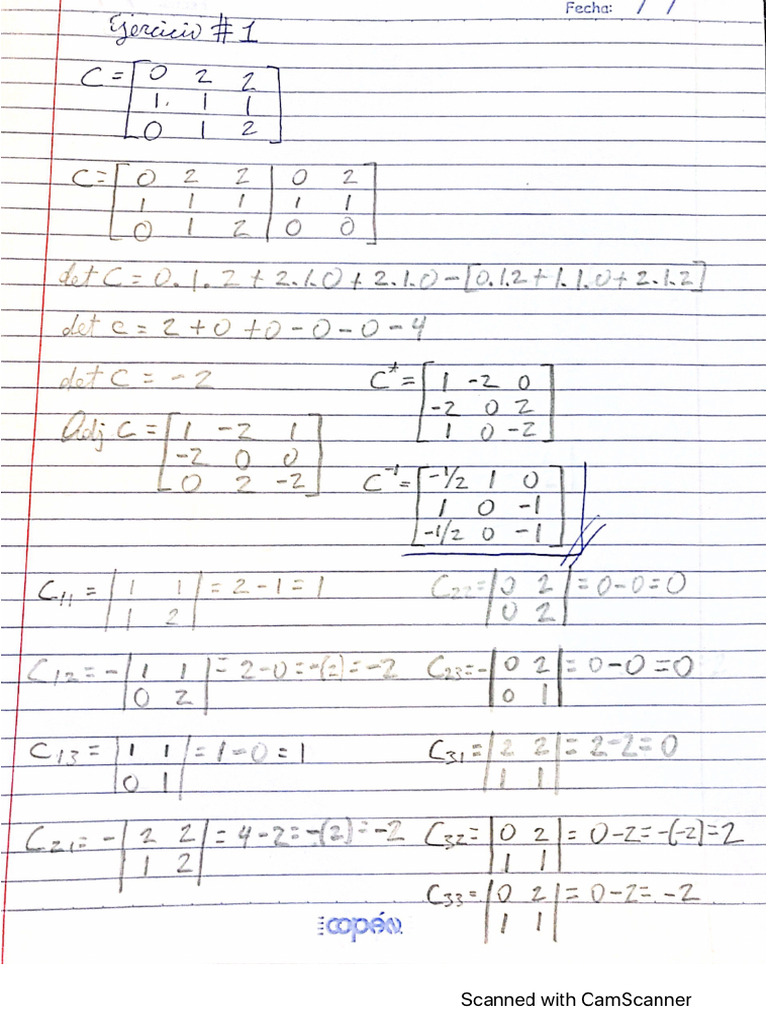 Fecha: / /
Ejercicio #1
C = [0 2 2
1. 1 1
0 1 2]
C = [0 2 2 | 0 2
1 1 1 | 1 1
0 1 2 | 0 0]
det C = 0.1.2 + 2.1.0 + 2.1.0 - [0.1.2 + 1.1.0 + 2.1.2]
det C = 2 + 0 + 0 - 0 - 0 - 4
det C = -2
C* = [1 -2 0
-2 0 2
1 0 -2]
Adj C = [1 -2 1
-2 0 0
0 2 -2]
C⁻¹ = [-1/2 1 0
1 0 -1
-1/2 0 -1]
C11 = |1 1
1 2| = 2 - 1 = 1
C22 = |0 2
0 2| = 0 - 0 = 0
C12 = - |1 1
0 2| = 2 - 0 = -(2) = -2
C23 = - |0 2
0 1| = 0 - 0 = 0
C13 = |1 1
0 1| = 1 - 0 = 1
C31 = |2 2
1 1| = 2 - 2 = 0
C21 = - |2 2
1 2| = 4 - 2 = -(2) = -2
C32 = |0 2
1 1| = 0 - 2 = -(-2) = 2
C33 = |0 2
1 1| = 0 - 2 = -2
copán
Scanned with CamScanner